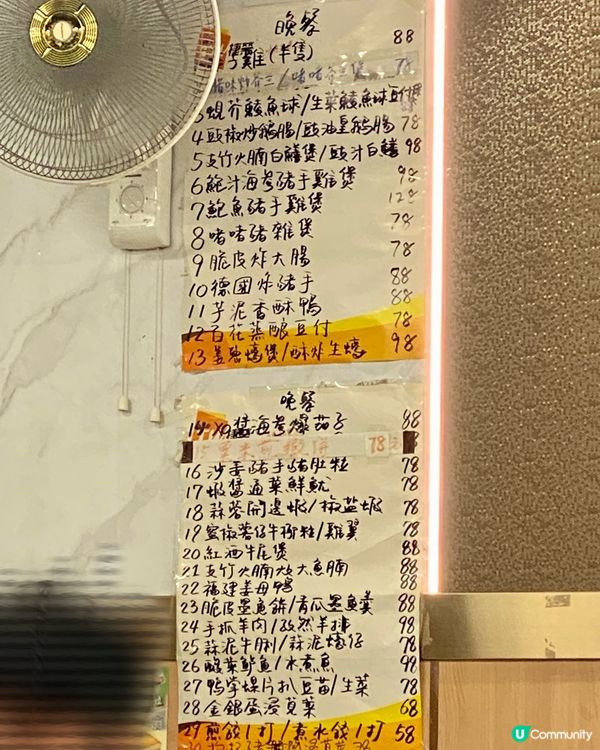 晚餐
雞(半隻) 88
啫啫芥兰煲 78
3 蜆芥鯪魚球/生菜鯪魚球豆付煲
4 豉椒炒鵝腸/豉油皇鵝腸 78
5 支竹火腩白鱔煲/豉汁白鱔 98
6 鮑汁海参豬手雞煲 98
7 鮑魚豬手雞煲 128
8 啫啫豬雜煲 78
9 脆皮炸大腸 78
10 德國炸豬手 88
11 芋泥香酥鴨 88
12 百花蒸釀豆付 78
13 姜葱蠔煲/酥炸生蠔 98
晚餐
14 XO醬海参爆茄子 88
15 78
16 沙姜豬手豬肚粒 78
17 蝦醬通菜鮮魷 78
18 蒜蓉開邊蝦/椒盐蝦 78
19 蜜椒薯仔牛柳粒/雞翼 78
20 紅酒牛尾煲 88
21 支竹火腩炆大魚腩 88
22 福建姜母鴨 88
23 脆皮墨魚餅/青瓜墨魚羹 88
24 手抓羊肉/孜然羊排 98
25 蒜泥牛脷/蒜泥蟶仔 78
26 酸菜鲈魚/水煮魚 98
27 鴨掌螺片扒豆苗/生菜 78
28 金銀蛋浸莧菜 68
29 煎餃1打/煮水餃1打 58
30
U Community